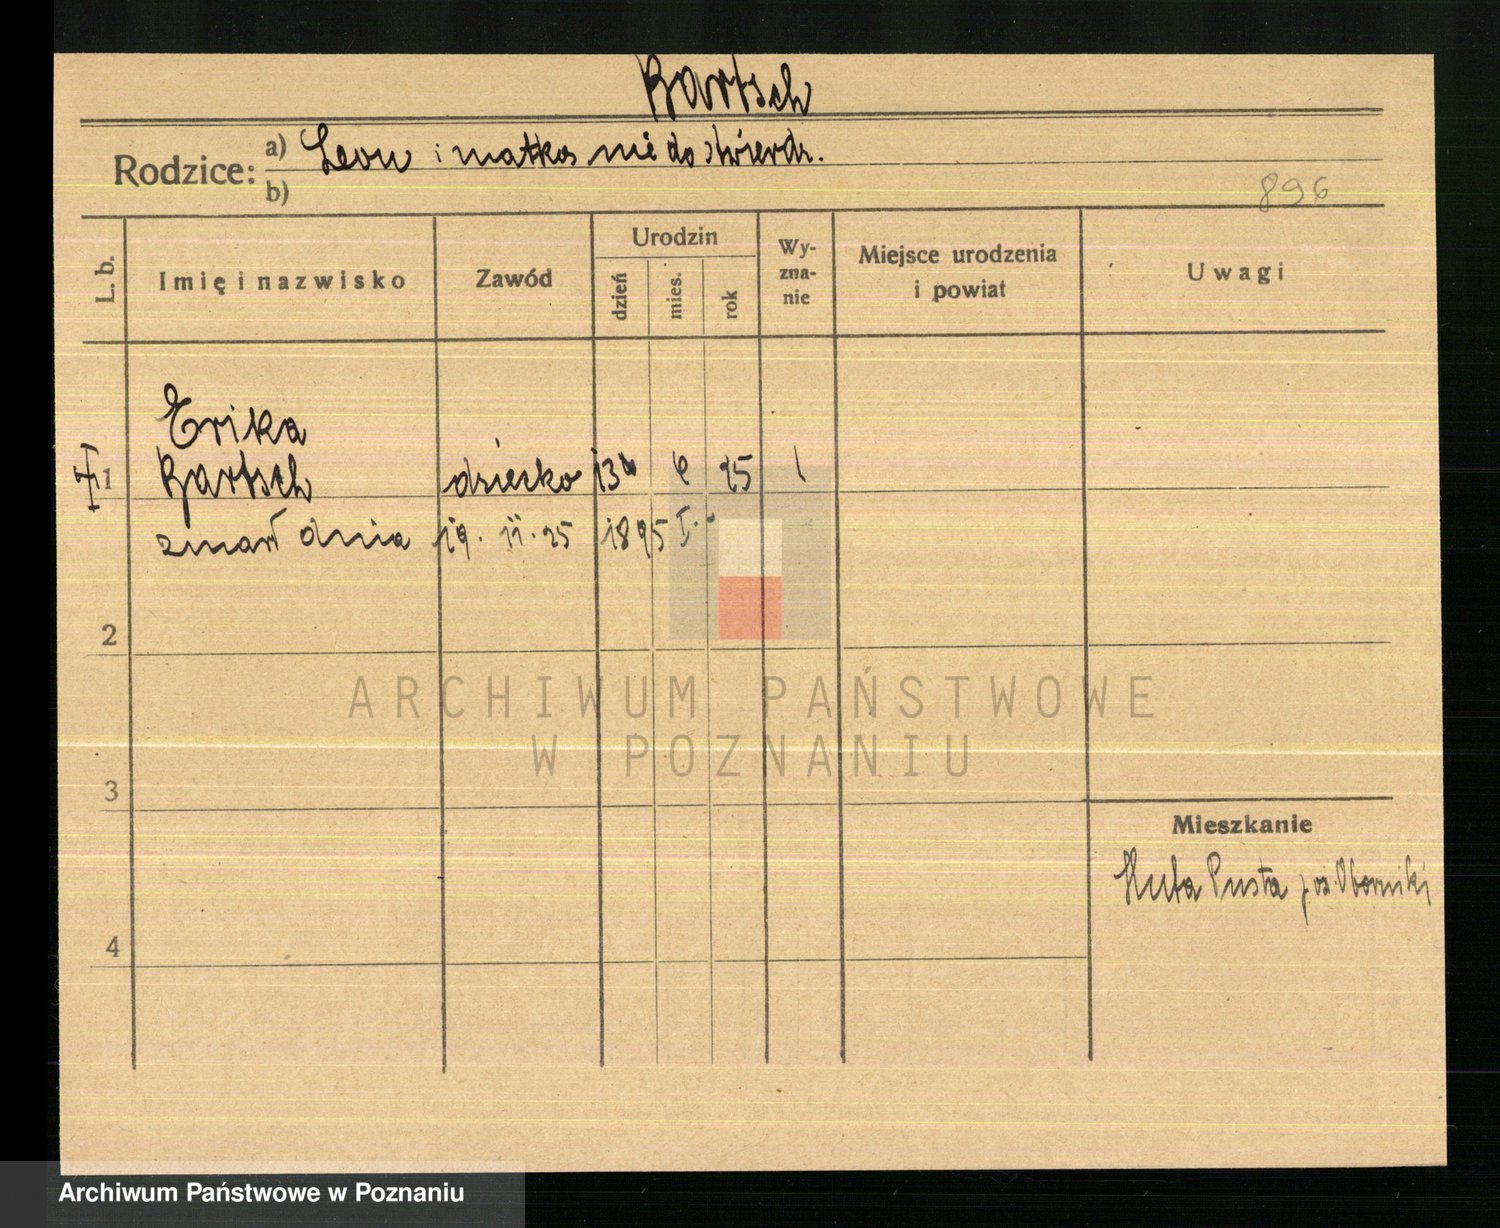 Bartsch
Rodzice: a) Leon i matka nie do stwierdz.
b)
896
L. b.
Imię i nazwisko
Zawód
Urodzin
dzień
mies.
rok
Wy-
zna-
nie
Miejsce urodzenia
i powiat
Uwagi
Erika
1 Bartsch dziecko 13 25
zmarł dnia 19. 11. 25 1895 I.
2
ARCHIWUM PAŃSTWOWE
W POZNANIU
3
Mieszkanie
Huta Pusta Oborniki
4
Archiwum Państwowe w Poznaniu